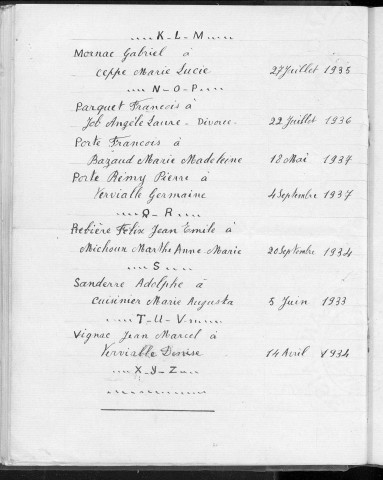 ....K_L_M.....
Mornac Gabriel à
Ceppe Marie Lucie 27 Juillet 1935
....N_O_P....
Parquet Francois à
Job Angèle Laure _ Divorce _ 22 Juillet 1936
Porte Francois à
Bazaud Marie Madeleine 18 Mai 1937
Porte Rémy Pierre à
Vervialle Germaine 4 Septembre 1937
....Q_R....
Rebière Felix Jean Emile à
Michoux Marthe Anne Marie 20 Septembre 1934
....S....
Sanderre Adolphe à
Cuisinier Marie Augusta 5 Juin 1933
....T_U_V....
Vignac Jean Marcel à
Vervialle Denise 14 Avril 1934
....X_Y_Z....